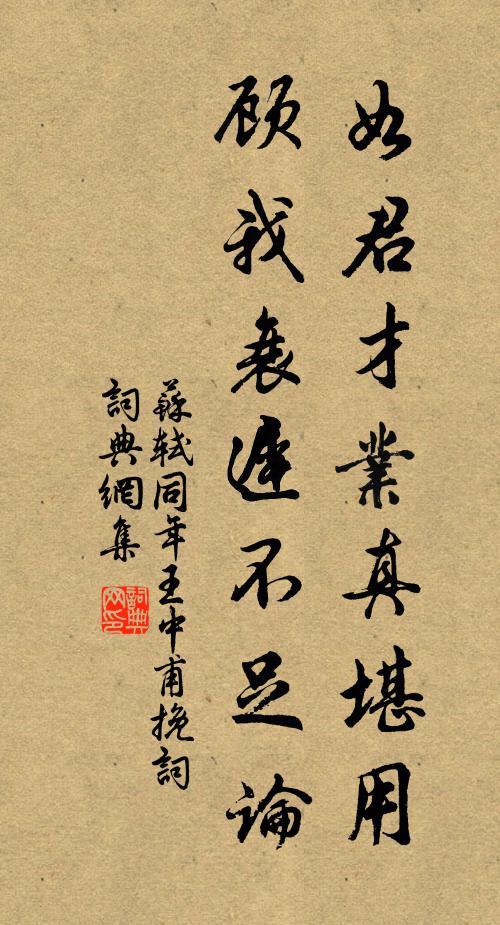 如君才業真堪用
顧我衰遲不足論
蘇軾同年王中甫挽詞
詞典網集
詞典网印